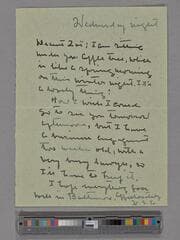 Wednesday night
Dearest Zoë; I am sitting
under your coffee tree, which
is like a spring morning
on this winter night. It's
a lovely thing!
How I wish I could
go to see you tomorrow
afternoon, but I have
a business engagement
two weeks old, with a
very busy lawyer, so
I'll have to keep it.
I hope everything goes
well in